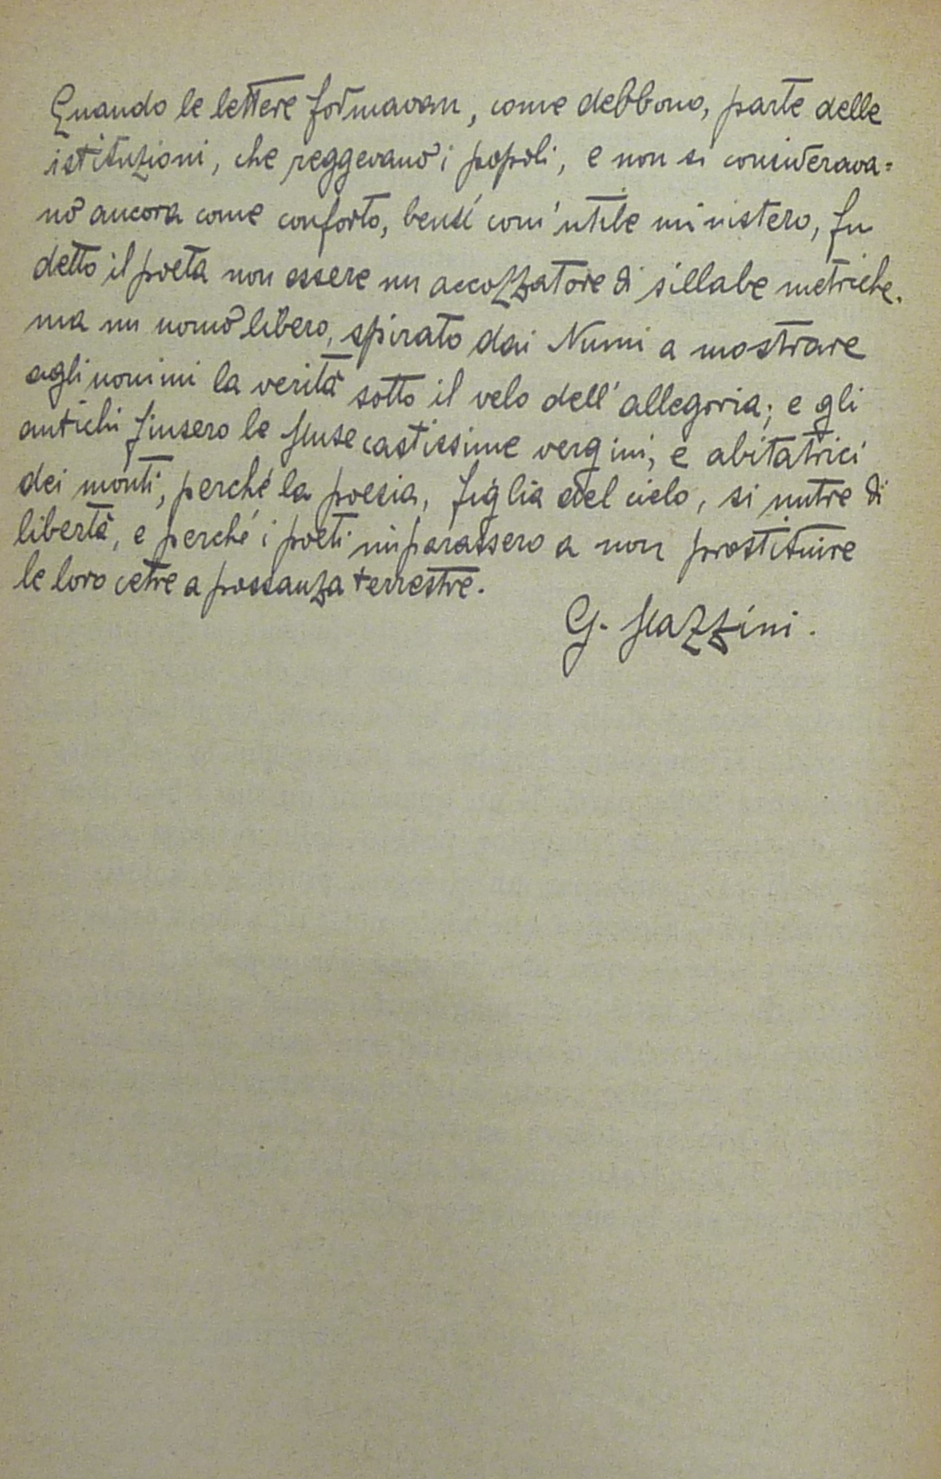 Quando le lettere formavan, come debbono, parte delle
istituzioni, che reggevano i popoli, e non si considerava=
no ancora come conforto, bensí com' utile ministero, fu
detto il poeta non essere un accozzatore di sillabe metriche,
ma un uomo libero, spirato dai Numi a mostrare
agli uomini la verità sotto il velo dell' allegoria; e gli
antichi finsero le Muse castissime vergini, e abitatrici
dei monti, perché la poesia, figlia del cielo, si nutre di
libertà, e perché i poeti imparassero a non prostituire
le loro cetre a possanza terrestre.
G. Mazzini.